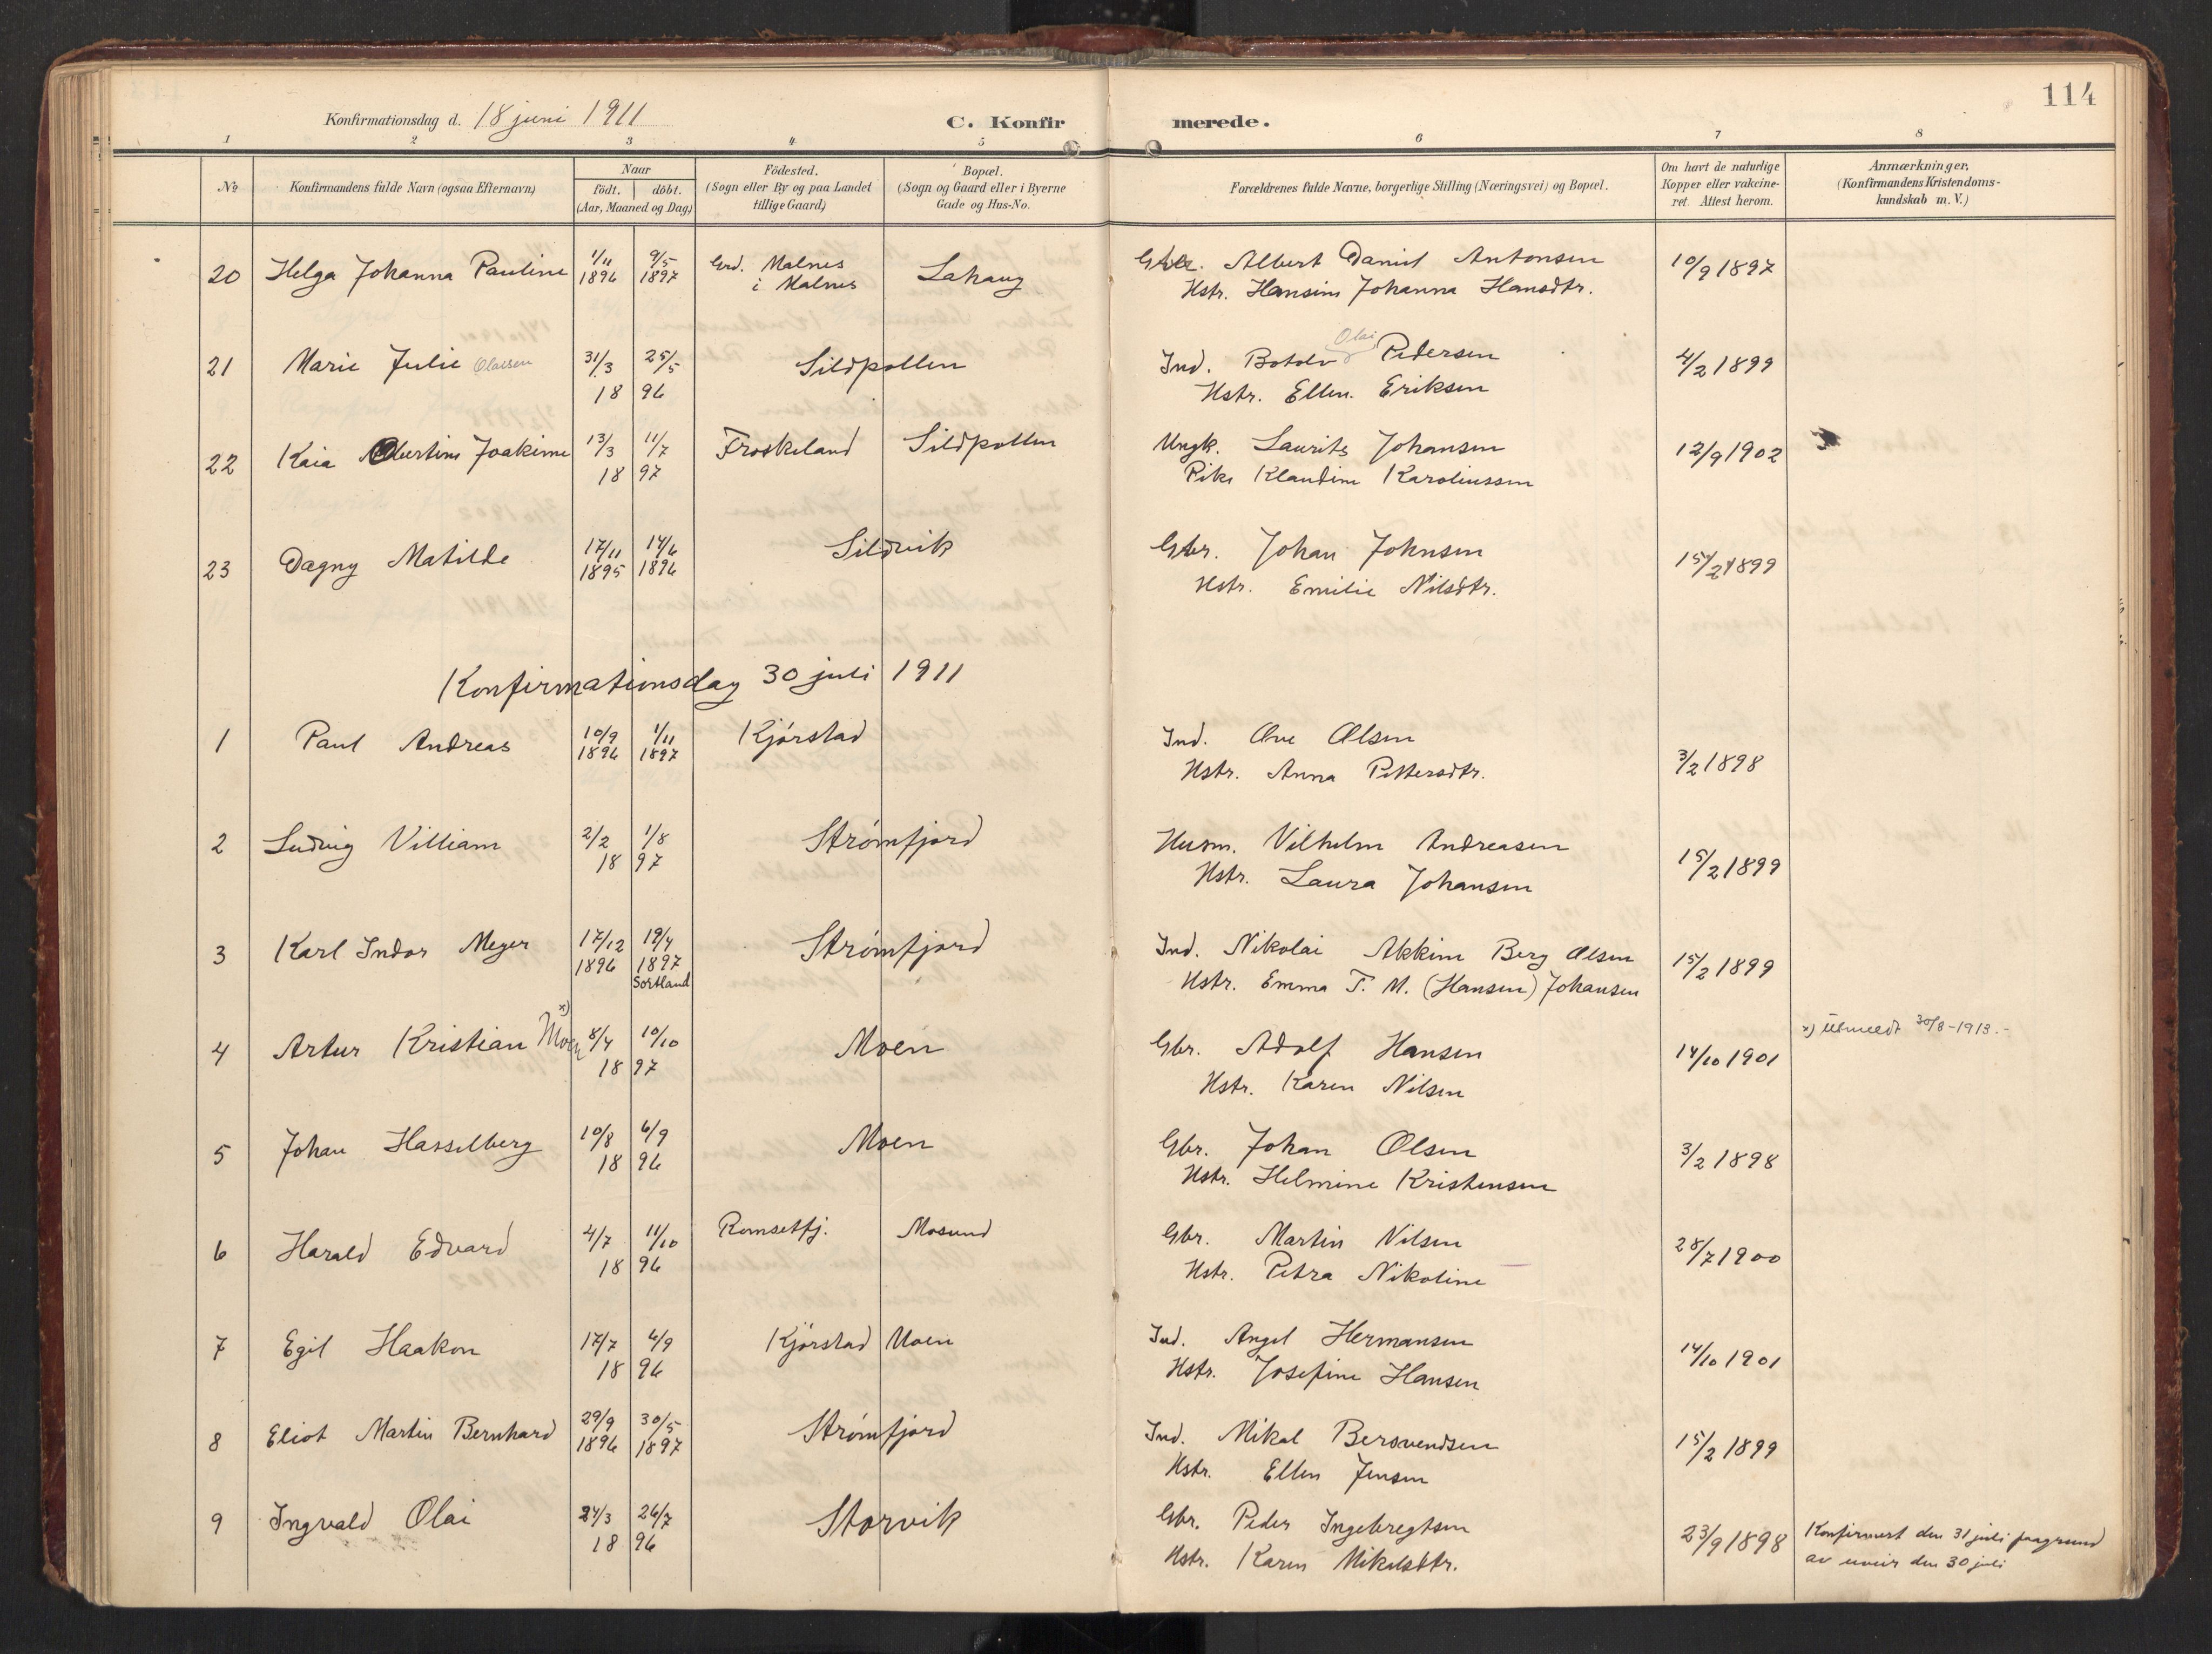 114
Konfirmationsdag d. 18 juni 1911
C. Konfirmerede.
1 2 3 4 5 6 7 8
№
Konfirmandens fulde Navn (ogsaa Efternavn)
Naar
födt. döbt.
(Aar, Maaned og Dag)
Födested.
(Sogn eller By og paa Landet
tillige Gaard)
Bopæl.
(Sogn og Gaard eller i Byerne
Gade og Hus-No.
Forældrenes fulde Navne, borgerlige Stilling (Næringsvei) og Bopæl.
Om havt de naturlige
Kopper eller vakcine-
ret. Attest herom.
Anmærkninger,
(Konfirmandens Kristendoms-
kundskab m. V.)
20 Helga Johanna Pauline 1/11 1896 9/5 1897 Grd. Malnes i Malnes Lahaug Gbr. Albert Daniel Antonsen 10/9 1897
Hstr. Hansine Johanna Hansdtr.
21 Marie Julie Olaisen 31/3 25/5 1896 Sildpollen Ind. Botolv Olai Pedersen 4/2 1899
Hstr. Ellen Eriksen
22 Kaia Albertine Joakime 13/3 11/7 1897 Froskeland Sildpollen Ungk. Laurits Johansen 12/9 1902
Pike Klaudine Karoliussen
23 Dagny Matilde 17/11 1895 14/6 1896 Sildvik Gbr. Johan Johnsen 15/2 1899
Hstr. Emilie Nilsdtr.
Konfirmationsdag 30 juli 1911
1 Paul Andreas 10/9 1896 1/11 1897 Kjørstad Ind. Ove Olsen 3/2 1898
Hstr. Anna Pettersdtr.
2 Ludvig Villiam 2/2 1/8 1897 Strømfjord Husm. Vilhelm Andreasen 15/2 1899
Hstr. Laura Johansen
3 Karl Indor Meyer 17/12 1896 19/4 1897 Sortland Strømfjord Ind. Nikolai Akkim Berg Olsen 15/2 1899
Hstr. Emma T. M. (Hansen) Johansen
4 Artur Kristian Moen x) 8/4 10/10 1897 Moen Gbr. Adolf Hansen 14/10 1901 x) Utmeldt 30/8-1913.-
Hstr. Karen Nilsen
5 Johan Hasselberg 10/8 6/9 1896 Moen Gbr. Johan Olsen 3/2 1898
Hstr. Helmine Kristensen
6 Harald Edvard 4/7 11/10 1896 Romsetfj. Mosund Gbr. Martin Nilsen 28/7 1900
Hstr. Petra Nikoline
7 Egil Haakon 17/7 6/9 1896 Kjørstad Moen Ind. Angel Hermansen 14/10 1901
Hstr. Josefine Hansen
8 Eliot Martin Bernhard 29/9 1896 30/5 1897 Strømfjord Ind. Mikal Bersvendsen 15/2 1899
Hstr. Ellen Jensen
9 Ingvald Olai 24/3 26/7 1896 Storvik Gbr. Peder Ingebregtsen 23/9 1898 Konfirmert den 31 juli paagrund
Hstr. Karen Mikalsdtr. av uveir den 30 juli